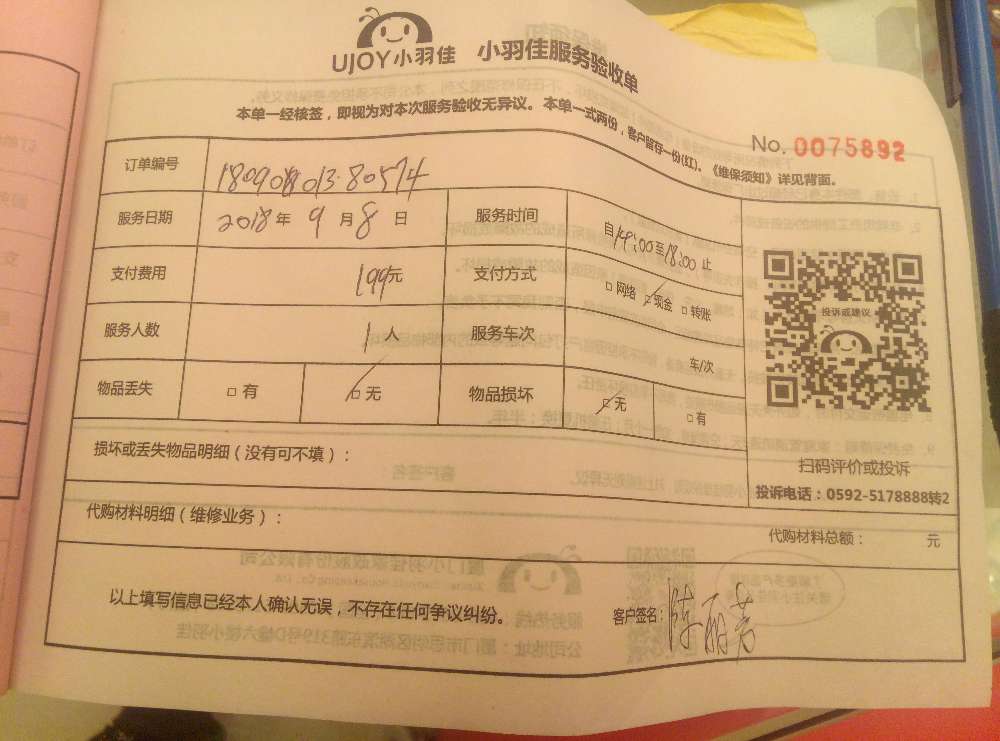 UJOY小羽佳 小羽佳服务验收单
本单一经核签，即视为对本次服务验收无异议。本单一式两份，客户留存一份(红)。《维保须知》详见背面。
No. 0075892
订单编号
服务日期 2018年 9月8日 服务时间 自14:00至18:00止
支付费用 199元 支付方式 □网络 ☑现金 □转账
服务人数 1人 服务车次 车/次
物品丢失 □有 ☑无 物品损坏 ☑无 □有
投诉或建议
损坏或丢失物品明细（没有可不填）：
扫码评价或投诉
投诉电话：0592-5178888转2
代购材料明细（维修业务）：
代购材料总额： 元
以上填写信息已经本人确认无误，不存在任何争议纠纷。 客户签名：陈丽芳